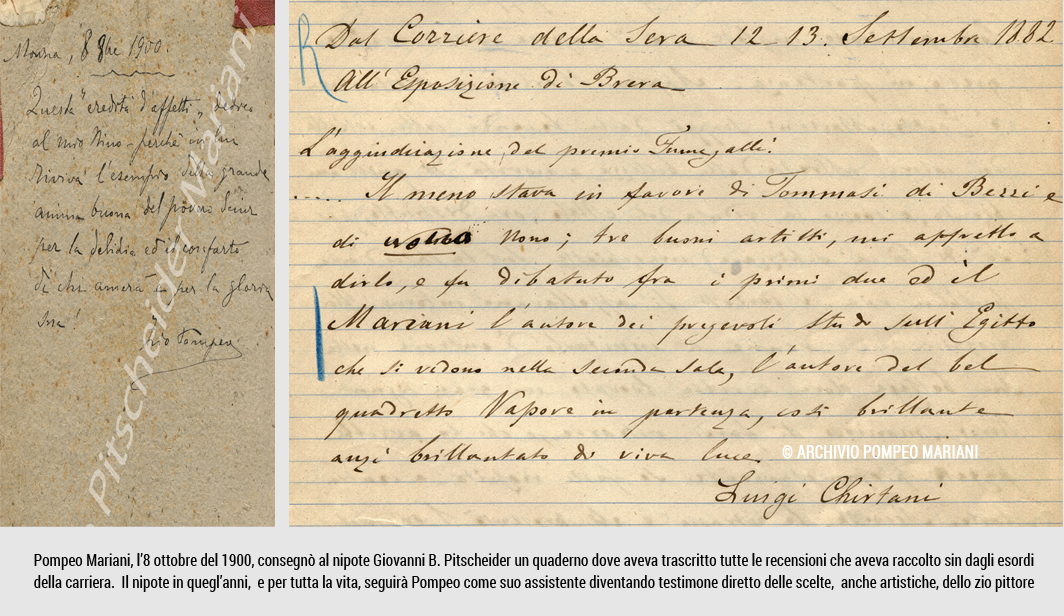 Monza, 8 8bre 1900.
Questa "eredità d'affetti" dedico
al mio Nino - perchè in lui
Riviva l'esempio della grande
anima buona del povero
per la delizia ed il conforto
di chi amerà e per la gloria
sua!
zio Pompeo
Pitscheider Mariani
Dal Corriere della Sera 12-13. Settembre 1882
All'Esposizione di Brera
L'aggiudicazione del premio Fumagalli.
..... Il meno stava in favore di Tommasi di Bezzi e
di Nono; tre buoni artisti, mi affretto a
dirlo, e fu dibatuto fra i primi due ed il
Mariani l'autore dei pregevoli studi sull'Egitto
che si vedono nella seconda sala, l'autore del bel
quadretto Vapore in partenza, così brillante
anzi brillantato di viva luce.
Luigi Chirtani
© ARCHIVIO POMPEO MARIANI
Pompeo Mariani, l'8 ottobre del 1900, consegnò al nipote Giovanni B. Pitscheider un quaderno dove aveva trascritto tutte le recensioni che aveva raccolto sin dagli esordi
della carriera. Il nipote in quegl'anni, e per tutta la vita, seguirà Pompeo come suo assistente diventando testimone diretto delle scelte, anche artistiche, dello zio pittore